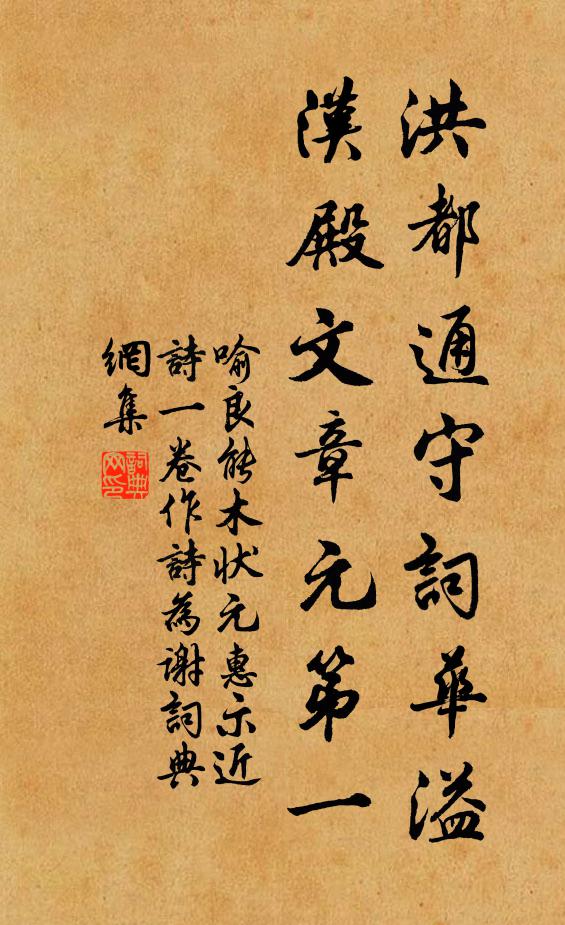 洪都通守詞華溢
漢殿文章元第一
喻良能木狀元惠示近
詩一卷作詩為謝詞典
網集
詞典
网印